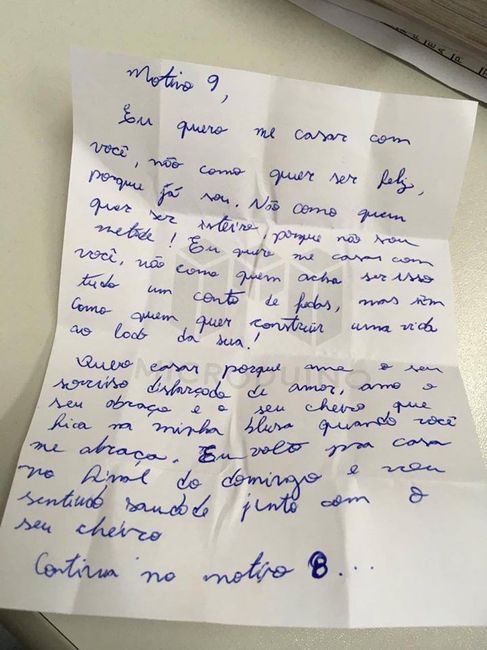 Motivo 9,
Eu quero me casar com
você, não como quer ser feliz,
porque já sou. Não como quem
quer ser inteira, porque não sou
metade! Eu quero me casar com
você, não como quem acha ser isso
tudo um conto de fadas, mas sim
como quem quer construir uma vida
ao lado da sua!
Quero casar porque amo o seu
sorriso disfarçado de amor, amo o
seu abraço e o seu cheiro que
fica na minha blusa quando você
me abraça. Eu volto pra casa
no final do domingo e vou
sentindo saudade junto com o
seu cheiro
Continua no motivo 8...
MICRODUINO